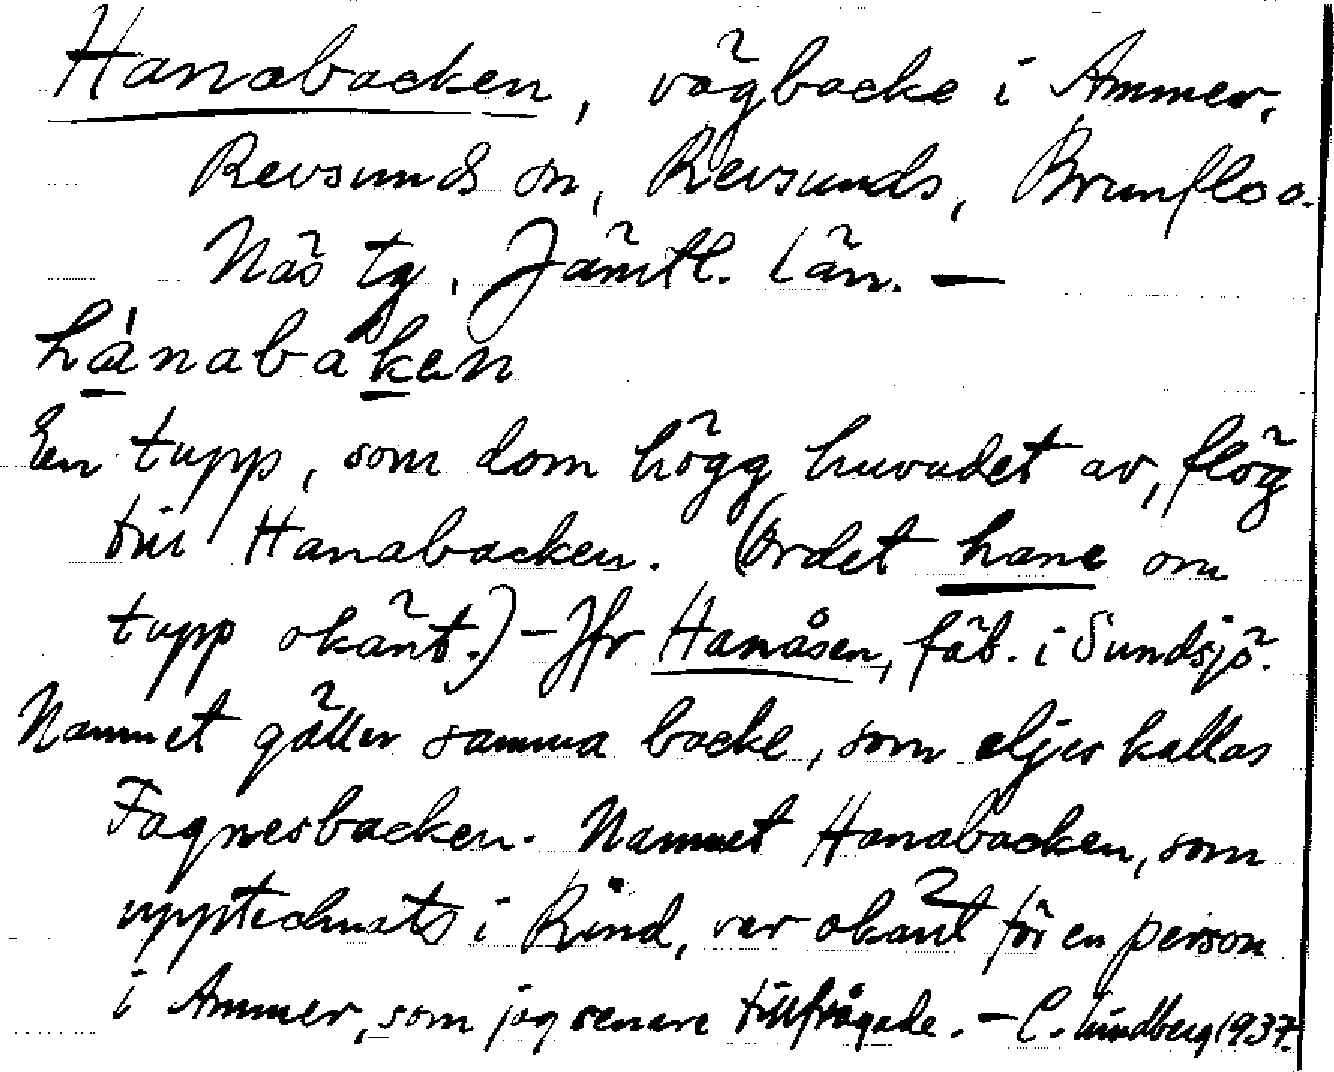 Hanabacken, vägbacke i Ammer,
Revsunds sn, Revsunds, Brunflo o.
Näs tg, Jämtl. län. —
hánabàken
En tupp, som dom högg huvudet av, flög
till Hanabacken. (Ordet hane om
tupp okänt.) — Jfr Hanåsen, fäb. i Sundsjö.
Namnet gäller samma backe, som eljes kallas
Fagnesbacken. Namnet Hanabacken, som
upptecknats i Rind, var okänt för en person
i Ammer, som jag senare tillfrågade. — C. Lindberg 1937.